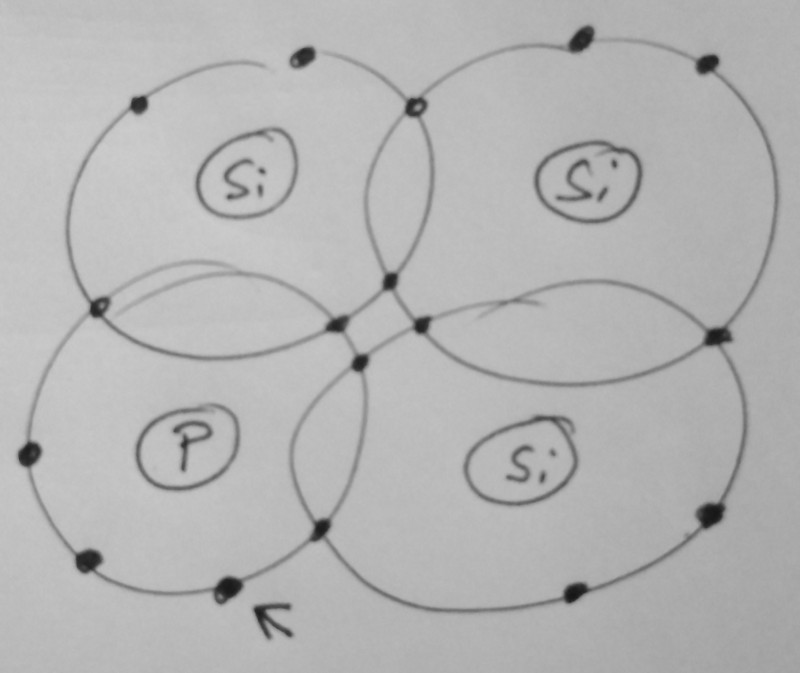 Si
Si
P
Si